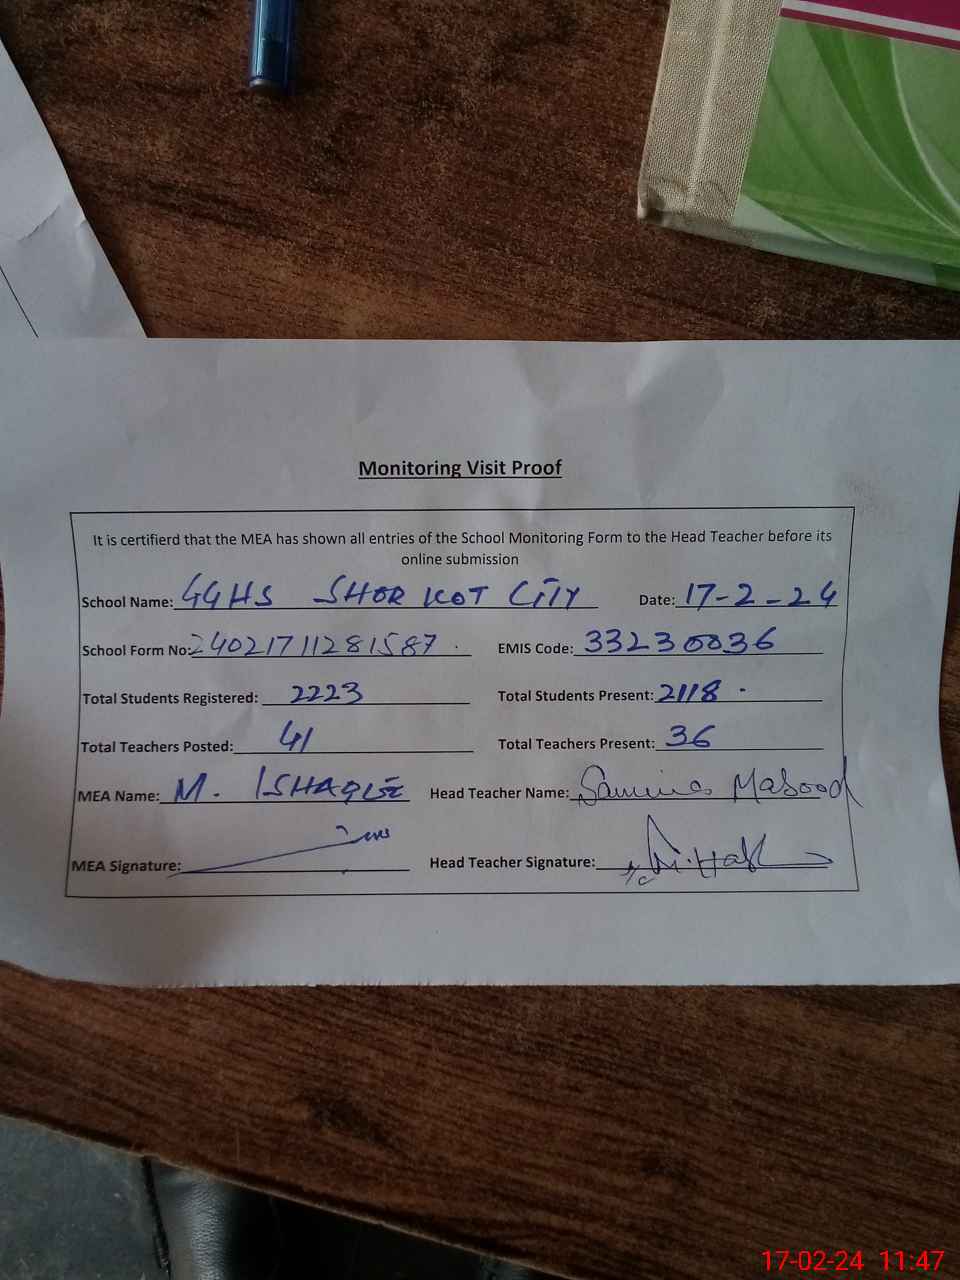 Monitoring Visit Proof
It is certifierd that the MEA has shown all entries of the School Monitoring Form to the Head Teacher before its
online submission
School Name: GGHS SHOR KOT CITY Date: 17-2-24
School Form No: 24021711281587. EMIS Code: 33230036
Total Students Registered: 2223 Total Students Present: 2118
Total Teachers Posted: 41 Total Teachers Present: 36
MEA Name: M. ISHAQUE Head Teacher Name: Samina Masood
MEA Signature: Head Teacher Signature:
17-02-24 11:47